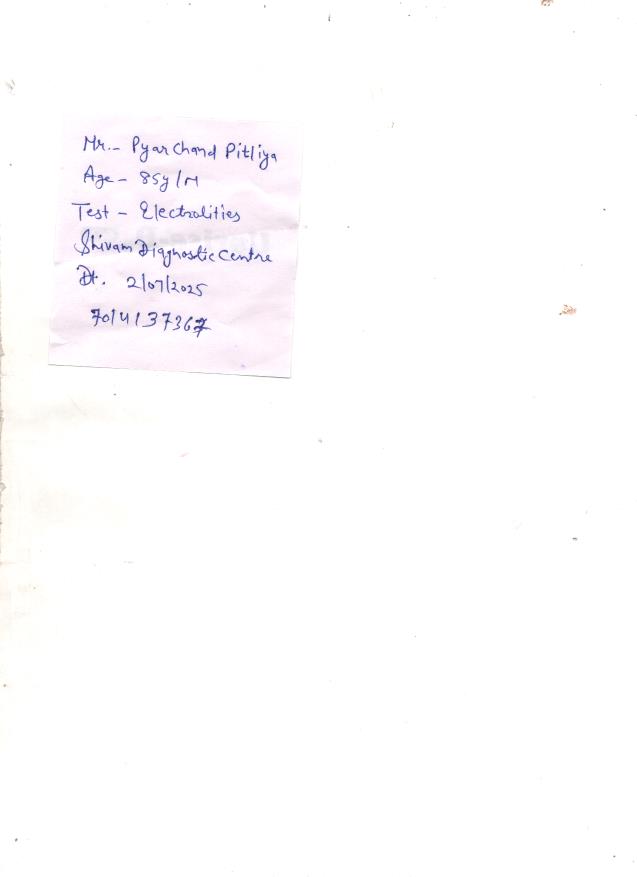 Mr.- Pyar Chand Pitliya
Age - 85y/M
Test - Electrolities
Shivam Diagnostic Centre
Dt. 2/07/2025
7014137367